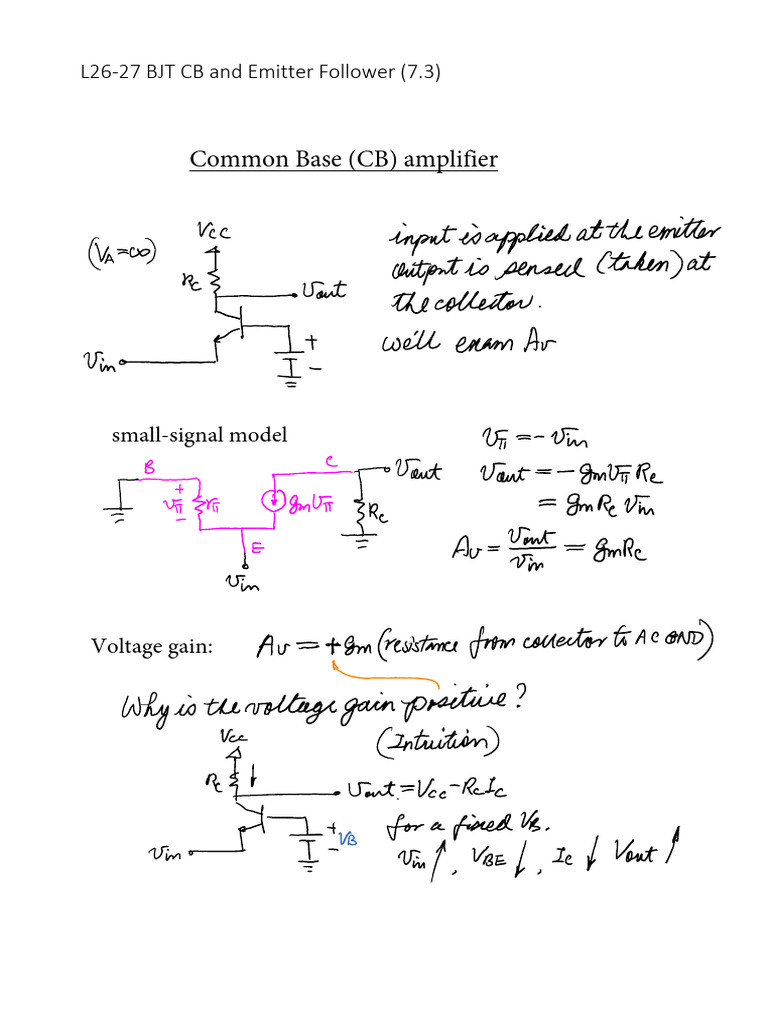 L26-27 BJT CB and Emitter Follower (7.3)
Common Base (CB) amplifier
(VA=∞)
Vcc
Rc
Vout
Vin
+
-
input is applied at the emitter
output is sensed (taken) at
the collector.
we'll exam Av
small-signal model
B
+
vπ
-
rπ
C
gmvπ
E
vin
Vout
Rc
vπ = -vin
vout = -gmvπRc
= gmRcvin
Av = vout/vin = gmRc
Voltage gain:
Av = +gm(resistance from collector to AC GND)
Why is the voltage gain positive?
(Intuition)
Vcc
Rc ↓
Vout = Vcc-RcIc
Vin
+
VB
-
for a fixed VB.
Vin ↑, VBE ↓, Ic ↓ Vout ↑